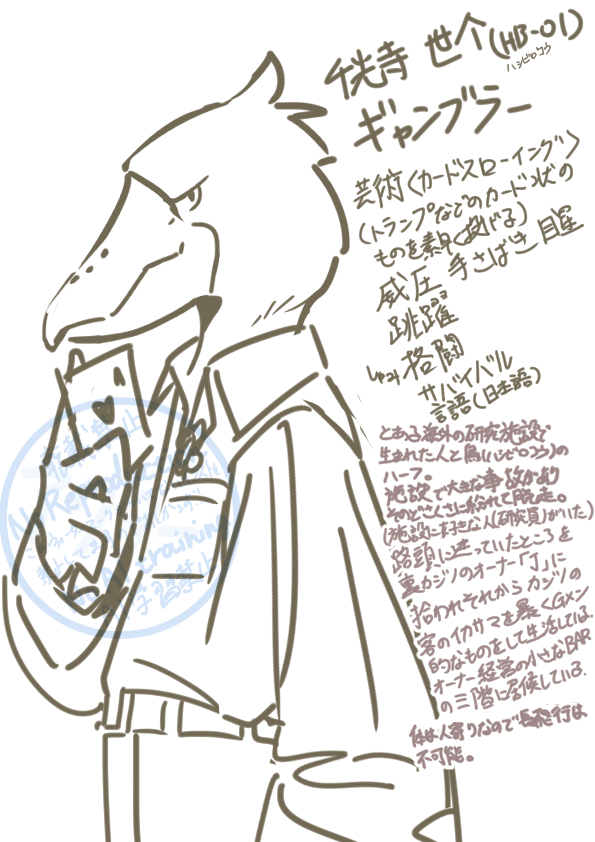 恍寺 世介(HB-01)
ハシビロコウ
ギャンブラー
芸術〈カードスローイング〉
(トランプなどのカード状の
ものを素早く投げる)
威圧 手さばき 目星
跳躍
格闘
サバイバル
言語(日本語)
とある海外の研究施設で
生まれた人と鳥(ハシビロコウ)の
ハーフ。
施設で大きな事故があり
そのどさくさに紛れて脱走。
(施設に好きな人(研究員)がいた)
路頭に迷っていたところを
裏カジノのオーナー「J」に
拾われそれからカジノの
客のイカサマを暴くGメン
的なものをして生活している.
オーナー経営の小さなBAR
の三階に居候している.
体は人寄りなので長飛行は
不可能。
無断転載禁止
No Reproduction
AI training
AI学習禁止